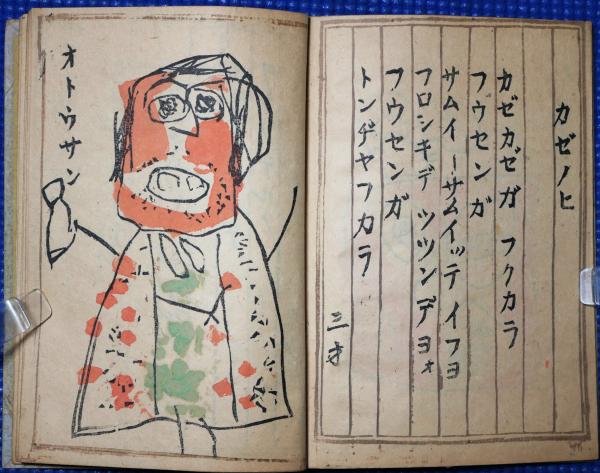 カゼノヒ
カゼカゼガ フクカラ
フウセンガ
サムイーサムイッテ イフヨ
フロシキデ ツツンデヨォ
フウセンガ
トンヂヤフカラ
三才
オトウサン